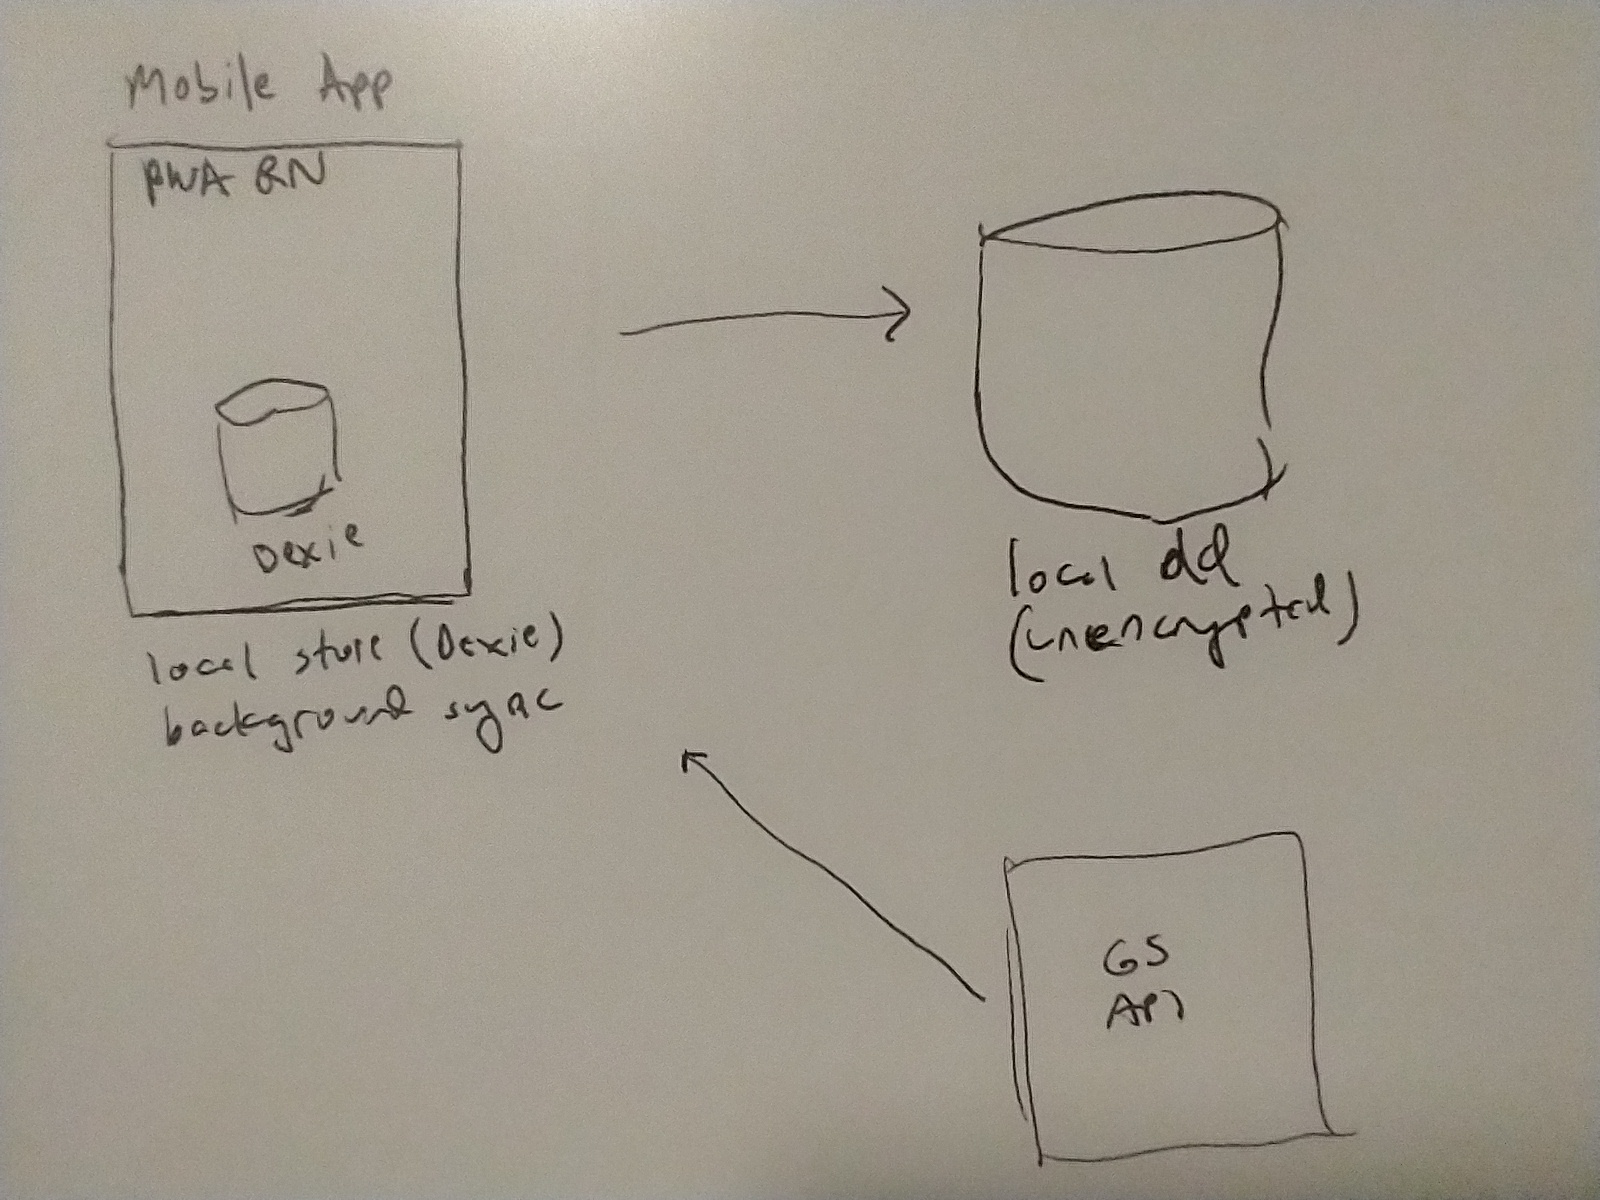 Mobile App
PWA RN
Dexie
local store (Dexie)
background sync
local
(unencrypted)
GS
API